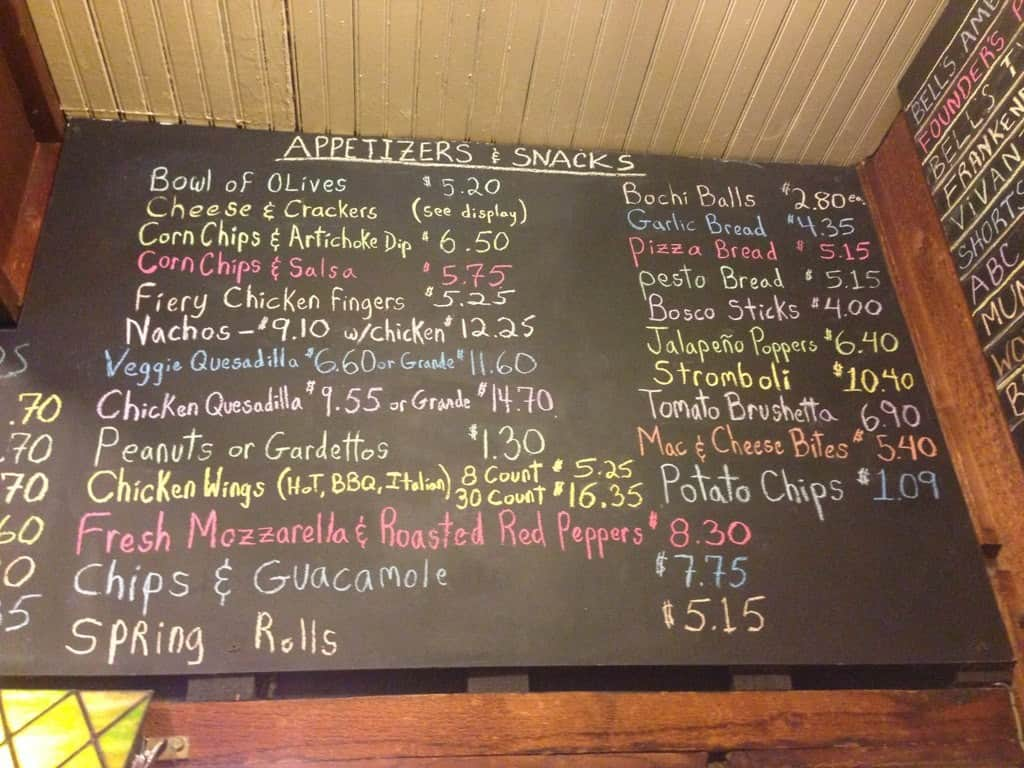 APPETIZERS & SNACKS
Bowl of Olives $5.20
Cheese & Crackers (see display)
Corn Chips & Artichoke Dip $6.50
Corn Chips & Salsa $5.75
Fiery Chicken Fingers $5.25
Nachos - $9.10 w/chicken $12.25
Veggie Quesadilla $6.60 or Grande $11.60
Chicken Quesadilla $9.55 or Grande $14.70
Peanuts or Gardettos $1.30
Chicken Wings (HOT, BBQ, Italian) 8 Count $5.25
30 Count $16.35
Fresh Mozzarella & Roasted Red Peppers $8.30
Chips & Guacamole $7.75
Spring Rolls $5.15
Bochi Balls $2.80 ea.
Garlic Bread $4.35
Pizza Bread $5.15
pesto Bread $5.15
Bosco Sticks $4.00
Jalapeño Poppers $6.40
Stromboli $10.40
Tomato Brushetta 6.90
Mac & Cheese Bites $5.40
Potato Chips $1.09
.70
.70
70
60
0
5
BELLS AME
FOUNDERS P
BELL'S T
FRANKEN
VIVAN
SHORTS
ABC
MUN
WO
B